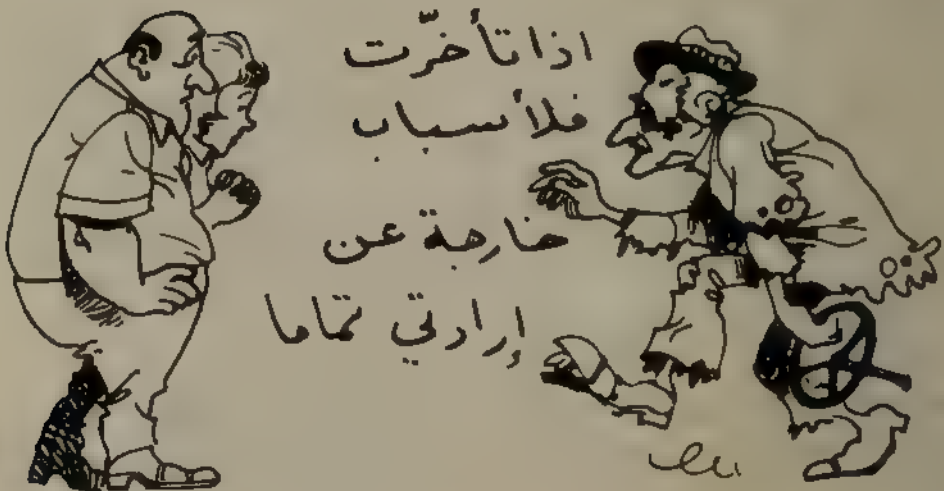 اذا تأخرّت
فلأسباب
خارجة عن
إرادتي تماما